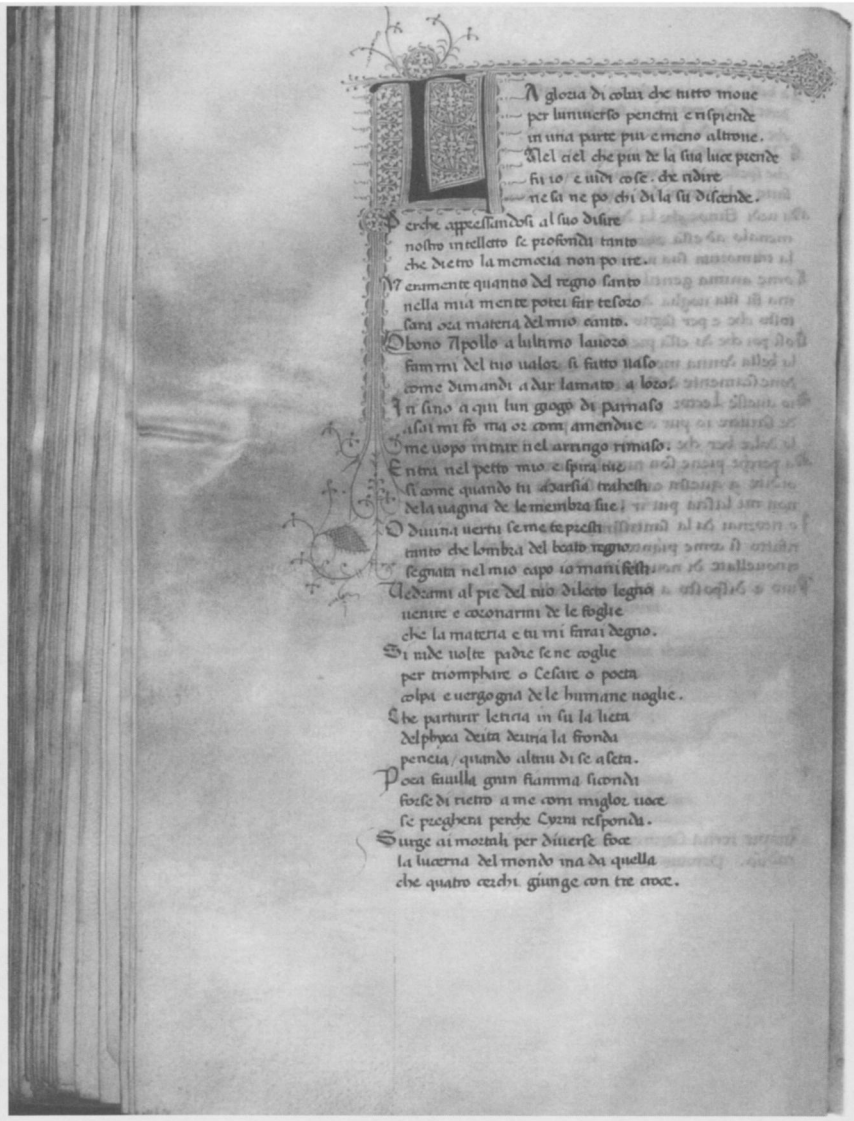 LA gloria di colui che tutto moue
per luniuerso penetra e risplende
in una parte piu e meno altroue.
Nel ciel che piu de la sua luce prende
fu io / e uidi cose . che ridire
ne sa ne po chi di la su discende.
Perche appressandosi al suo disire
nostro intelletto se profonda tanto
che dietro la memoria non po ire.
Veramente quantio del regno santo
nella mia mente potei far tesoro
sara ora materia del mio canto.
O bono Apollo a lultimo lauoro
fammi del tuo ualor si fatto uaso
come dimandi a dar lamato aloro.
In sino a qui lun giogo di parnaso
assai mi fo ma or com amendue
me uopo intrar nel arringo rimaso.
Entra nel petto mio e spira tue
si come quando tu Marsia trahesti
de la uagina de le membra sue;
O diuina uertu se me te presti
tanto che lombra del beato regno
segnata nel mio capo io manifesti.
Uedrami al pie del tuo dilecto legno
uenire e coronarmi de le foglie
che la materia e tu mi farai degno.
Si rade uolte padre se ne coglie
per triomphare o Cesare o poeta
colpa e uergogna de le humane uoglie.
Che parturir leticia in su la lieta
delphyca deita deuria la fronda
peneia / quando altrui di se aseta.
Poca fauilla gran fiamma siconda
forse di rietro a me com miglor uoce
se preghera perche Cyrra responda.
Surge ai mortali per diuerse foce
la lucerna del mondo ma da quella
che quatro cerchi giunge con tre croce.